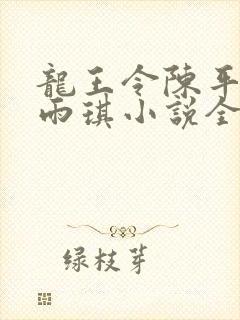 龍王令陳平
雨琪小說全
绿枝芽